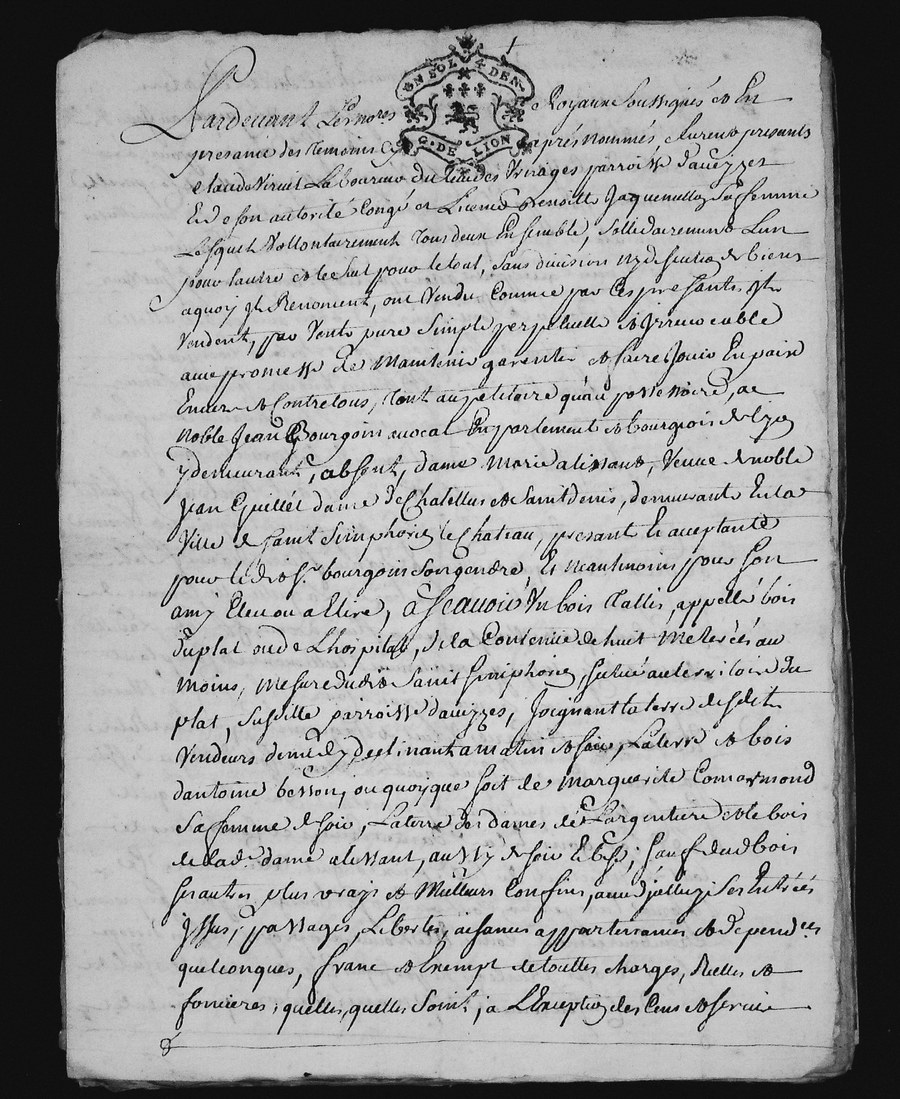 UN SOL 4 DEN
G. DE LION
Pardevant Les no.res Royaux Soussignés et En
presance des temoins cy après nommés, furent presents
Claude Viruit Laboureur du lieu des parroisse d'aveizzes
Et de son autorité Congé et Licence, Benoitte Jaquemettoz Sa femme
Lesquels Vollontairement tous deux Ensemble, Sollidairement L'un
pour l'autre et le Seul pour le tout, Sans division ny discution de biens
aquoy ils Renoncent, ont Vendu Comme par Ces presantes ils
Vendent, par Vente pure Simple perpetuelle et Irrevocable
avec promesse de Maintenir garentir et faire Jouir En paix
Envers et Contre tous, tant au petitoire qu'au possessoire, a
noble Jean Bourgoin avocat En parlement et bourgeois de Lyon
y demeurant, absent, dame Marie alissant, Veuve de noble
Jean Guillet dame de Chatellus et Saint denis, demeurante En la
Ville de Saint Simphorien le Chateau, presante et acceptante
pour led. S.r bourgoin Son gendre, Et neantmoins pour Son
amy Eleu ou a Elire, a Scavoir Un bois tallis, appellé bois
du plat ou de L'hospital, de la Contenue de huit Meterées au
moins, mesure dudit Saint Simphorien, Scitué au territoire du
plat, Susditte parroisse d'aveizzes, Joignant la terre desdits
Vendeurs de midy declinant a matin et Soir, La terre et bois
d'antoine besson, ou quoyque Soit de Marguerite Comarmond
Sa femme de Soir, La terre des dames de L'argentiere et le bois
de lad.e dame alessant, aussy de Soir Et bize; Sauf dud. bois
Ses autres plus vrays et Meilleurs Confins, avec Ses Entrées
Issues, passages, Libertés, aisances appartenances et dependces
quelconques, franc et Exempt de touttes charges, Reelles et
foncieres, quelles quelles Soint, a L'Exception des Cens et Servis